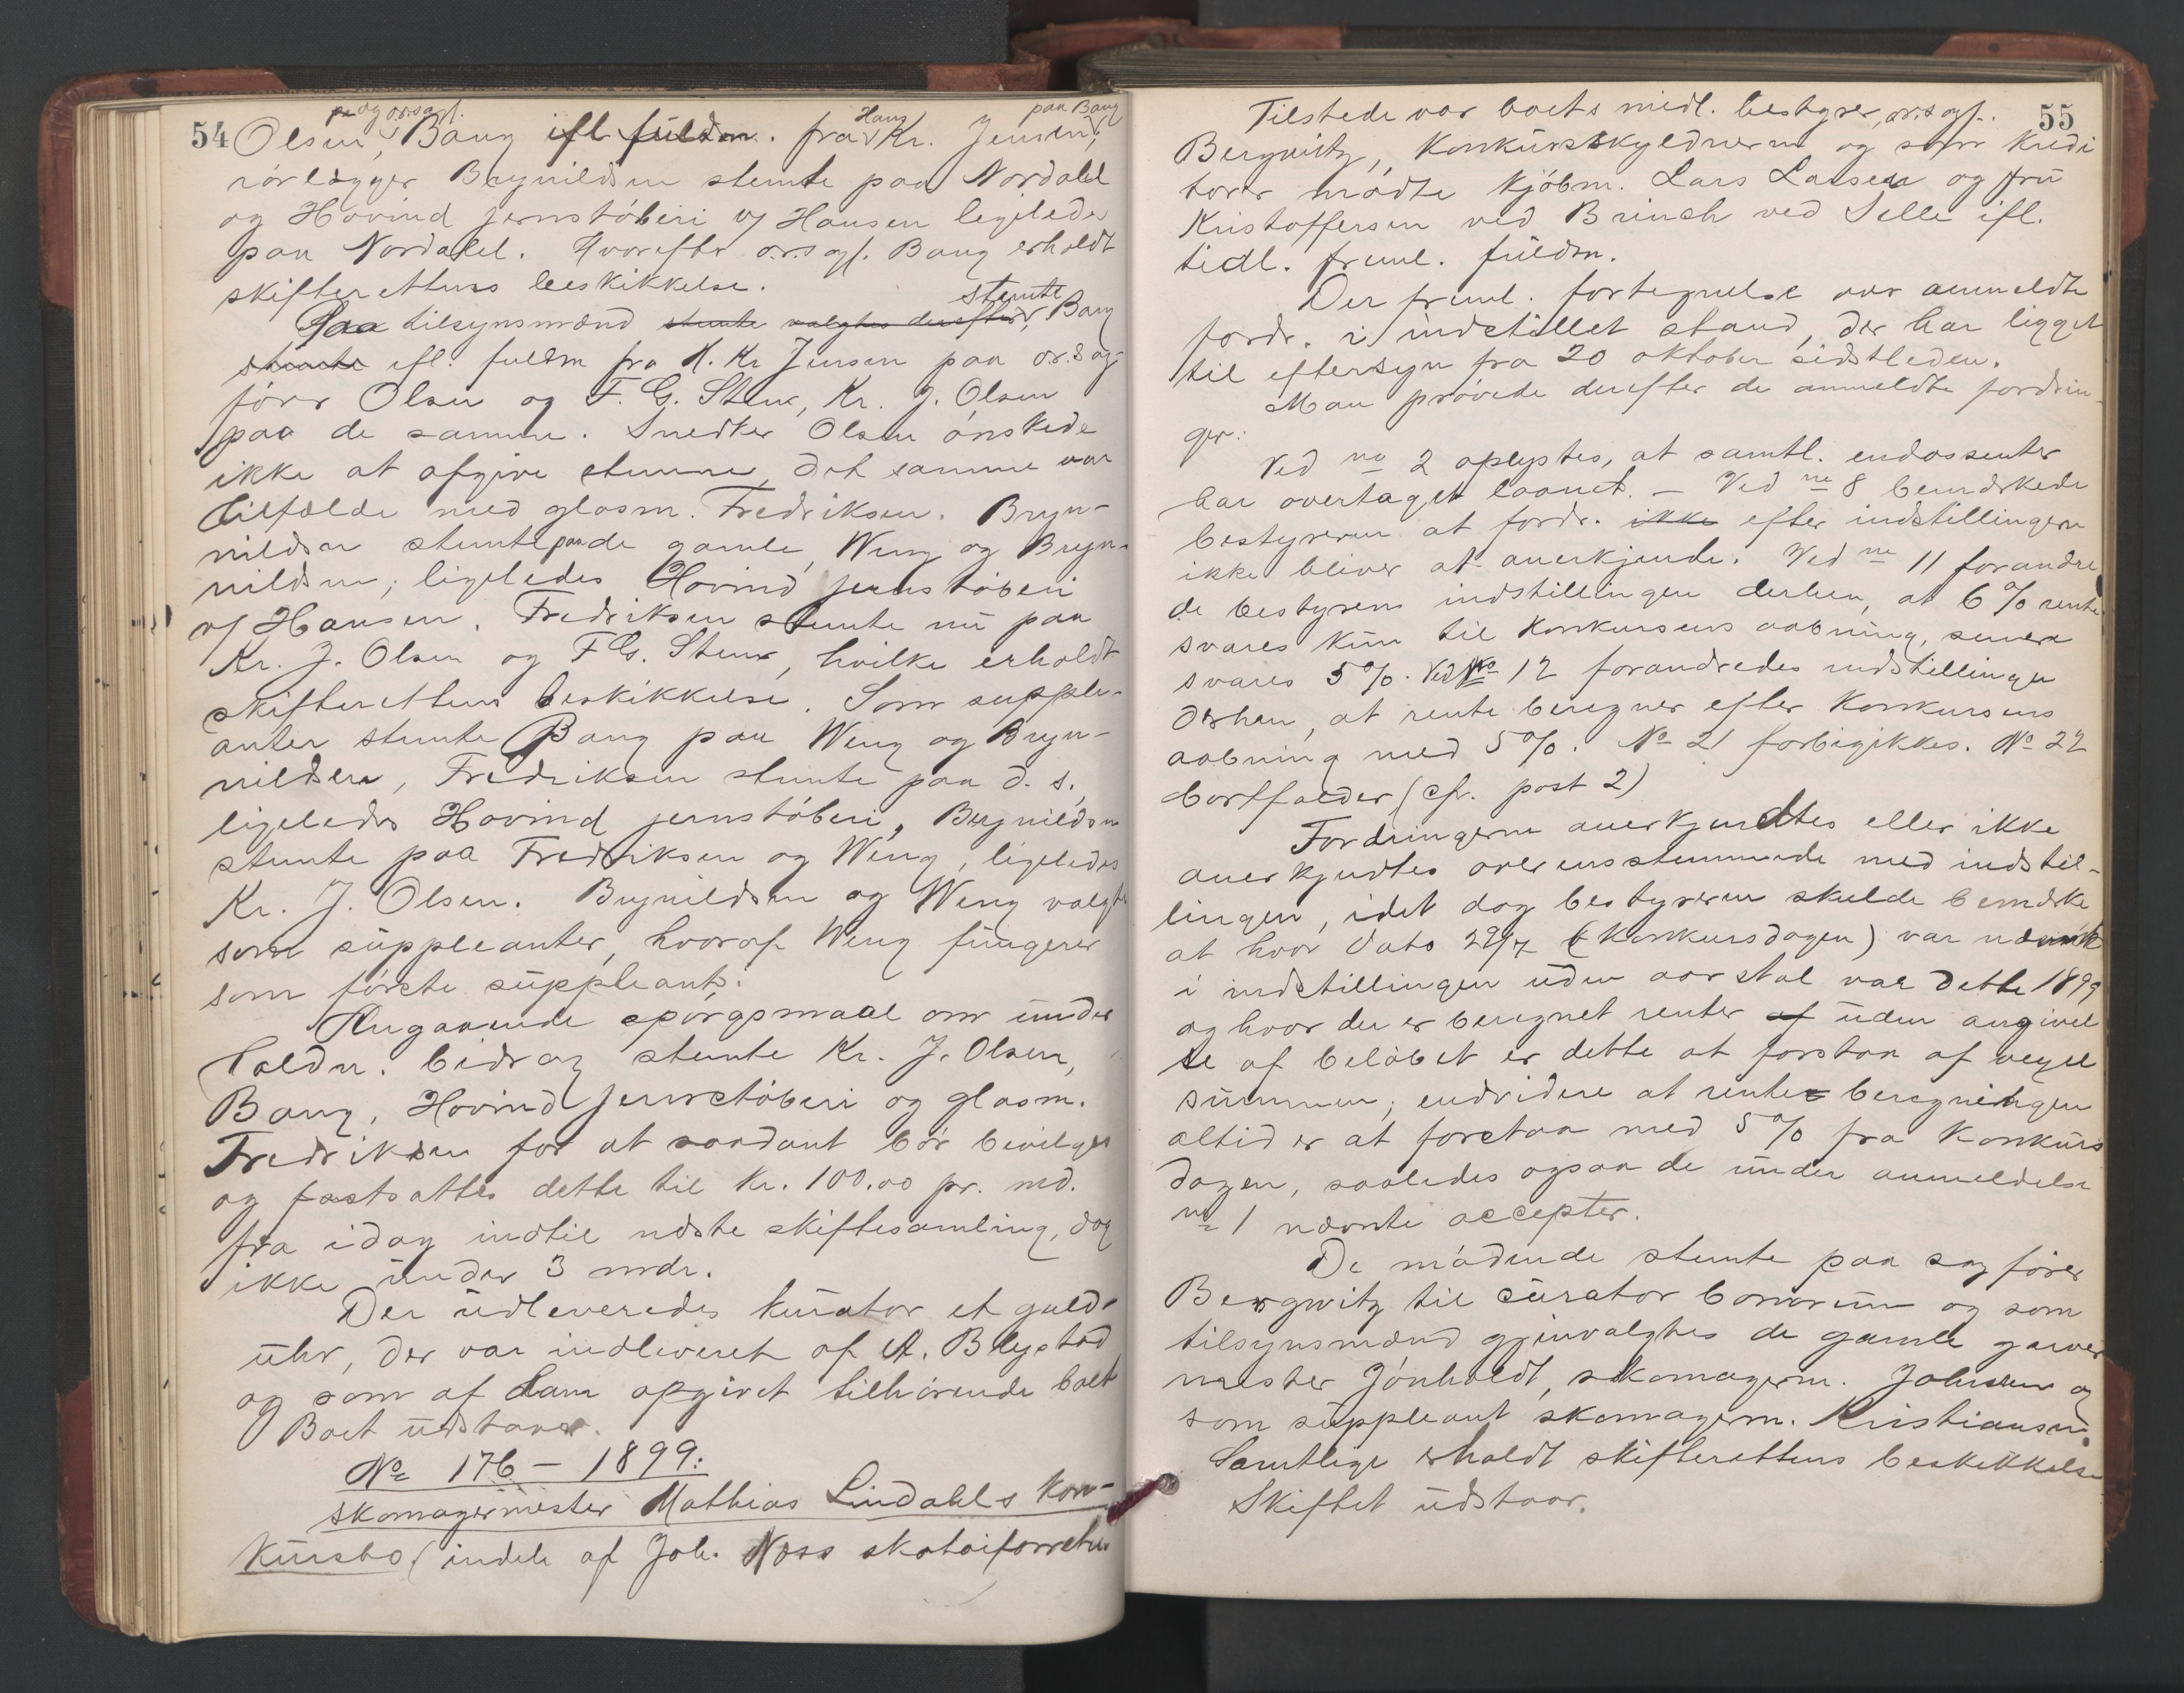 54
og o.r.sagf.
Olsen, Bang ifl fuldm. fra Hans Kr. Jensen, paa Bang
rørlægger Brynildsen stemte paa Nordahl
og Hovind jernstøberi v/ Hansen ligeledes
paa Nordahl. Hvorefter o.r.sagf. Bang erholdt
skifterettens beskikkelse.
Paa tilsynsmænd stemte valgtes derefter, stemte Bang
stemte ifl. fuldm fra H. Kr Jensen paa o.r.sag-
fører Olsen og F. G. Stene, Kr. J. Olsen
paa de samme. Snedker Olsen ønskede
ikke at afgive stemme, det samme var
tilfælde med glasm. Fredriksen. Bryn-
nildsen stemte paa de gamle, Weng og Bryn-
nildsen, ligeledes Hovind jernstøberi
v/ Hansen. Fredriksen stemte nu paa
Kr. J. Olsen og F G. Stene, hvilke erholdt
skifterettens beskikkelse. Som supple-
anter stemte Bang paa Weng og Bryn-
nildsen, Fredriksen stemte paa d. s.,
ligeledes Hovind jernstøberi, Brynildsen
stemte paa Fredriksen og Weng, ligeledes
Kr. J. Olsen. Brynildsen og Weng valgtes
som suppleanter, hvoraf Weng fungerer
som første suppleant.
Angaaende spørgsmaal om under
holdn. bidrag stemte Kr. J. Olsen,
Bang, Hovind Jernstøberi og glasm.
Fredriksen for at saadant bør bevilges
og fastsattes dette til Kr. 100.00 pr. md.
fra idag indtil næste skiftesamling, dog
ikke under 3 mdr.
Der udleveredes kurator et guld-
uhr, der var indleveret af A. Blystad
og som af ham opgivet tilhørende boet
Boet udstaar.
No 176 – 1899:
skomagermester Mathias Lindahls kon-
kursbo (indeh af Joh. Noss skotøiforretn.
55
Tilstede var boets midl. bestyrer, o.r.sagf.
Bergwitz, Konkursskyldneren og som kredi
torer mødte kjøbm. Lars Larsen og fru
Kristoffersen ved Brinch ved Selle ifl.
tidl. freml. fuldm.
Der freml. fortegnelse over anmeldte
fordr. i indstillet stand, der har ligget
til eftersyn fra 20 oktober sidstleden.
Man prøvede derefter de anmeldte fordrin-
ger:
Ved no 2 oplystes, at samtl. endossenter
har overtaget laanet. – Ved no 8 bemærkede
bestyreren at fordr. ikke efter indstillingen
ikke bliver at anerkjende. Ved no 11 forandre
de bestyrerens indstillingen derhen, at 6 % rente
svares kun til Konkursens aabning, senere
svares 5 %. Ved No 12 forandredes indstillingen
derhen, at rente beregnes efter Konkursens
aabning med 5 %. No 21 forbigikkes. No 22
bortfalder (cfr. post 2)
Fordringerne anerkjendtes eller ikke
anerkjendtes overensstemmende med indstil-
lingen, idet dog bestyreren skulde bemærke
at hvor dato 29/7 (Konkursdagen) var nævnt
i indstillingen uden aarstal var dette 1899
og hvor der er beregnet renter af uden angivel
se af beløbet er dette at forstaa af vexel
summen; endvidere at rente beregningen
altid er at foretaa med 5 % fra Konkurs
dagen, saaledes ogsaa de under anmeldelse
no 1 nævnte accepter.
De mødende stemte paa sagfører
Bergwitz til curator bonorum og som
tilsynsmænd gjenvalgtes de gamle garver
mester Jónholdt, skomagerm. Johnsen og
som suppleant skomagerm. Kristiansen.
Samtlige erholdt skifterettens beskikkelse
Skiftet udstaar.